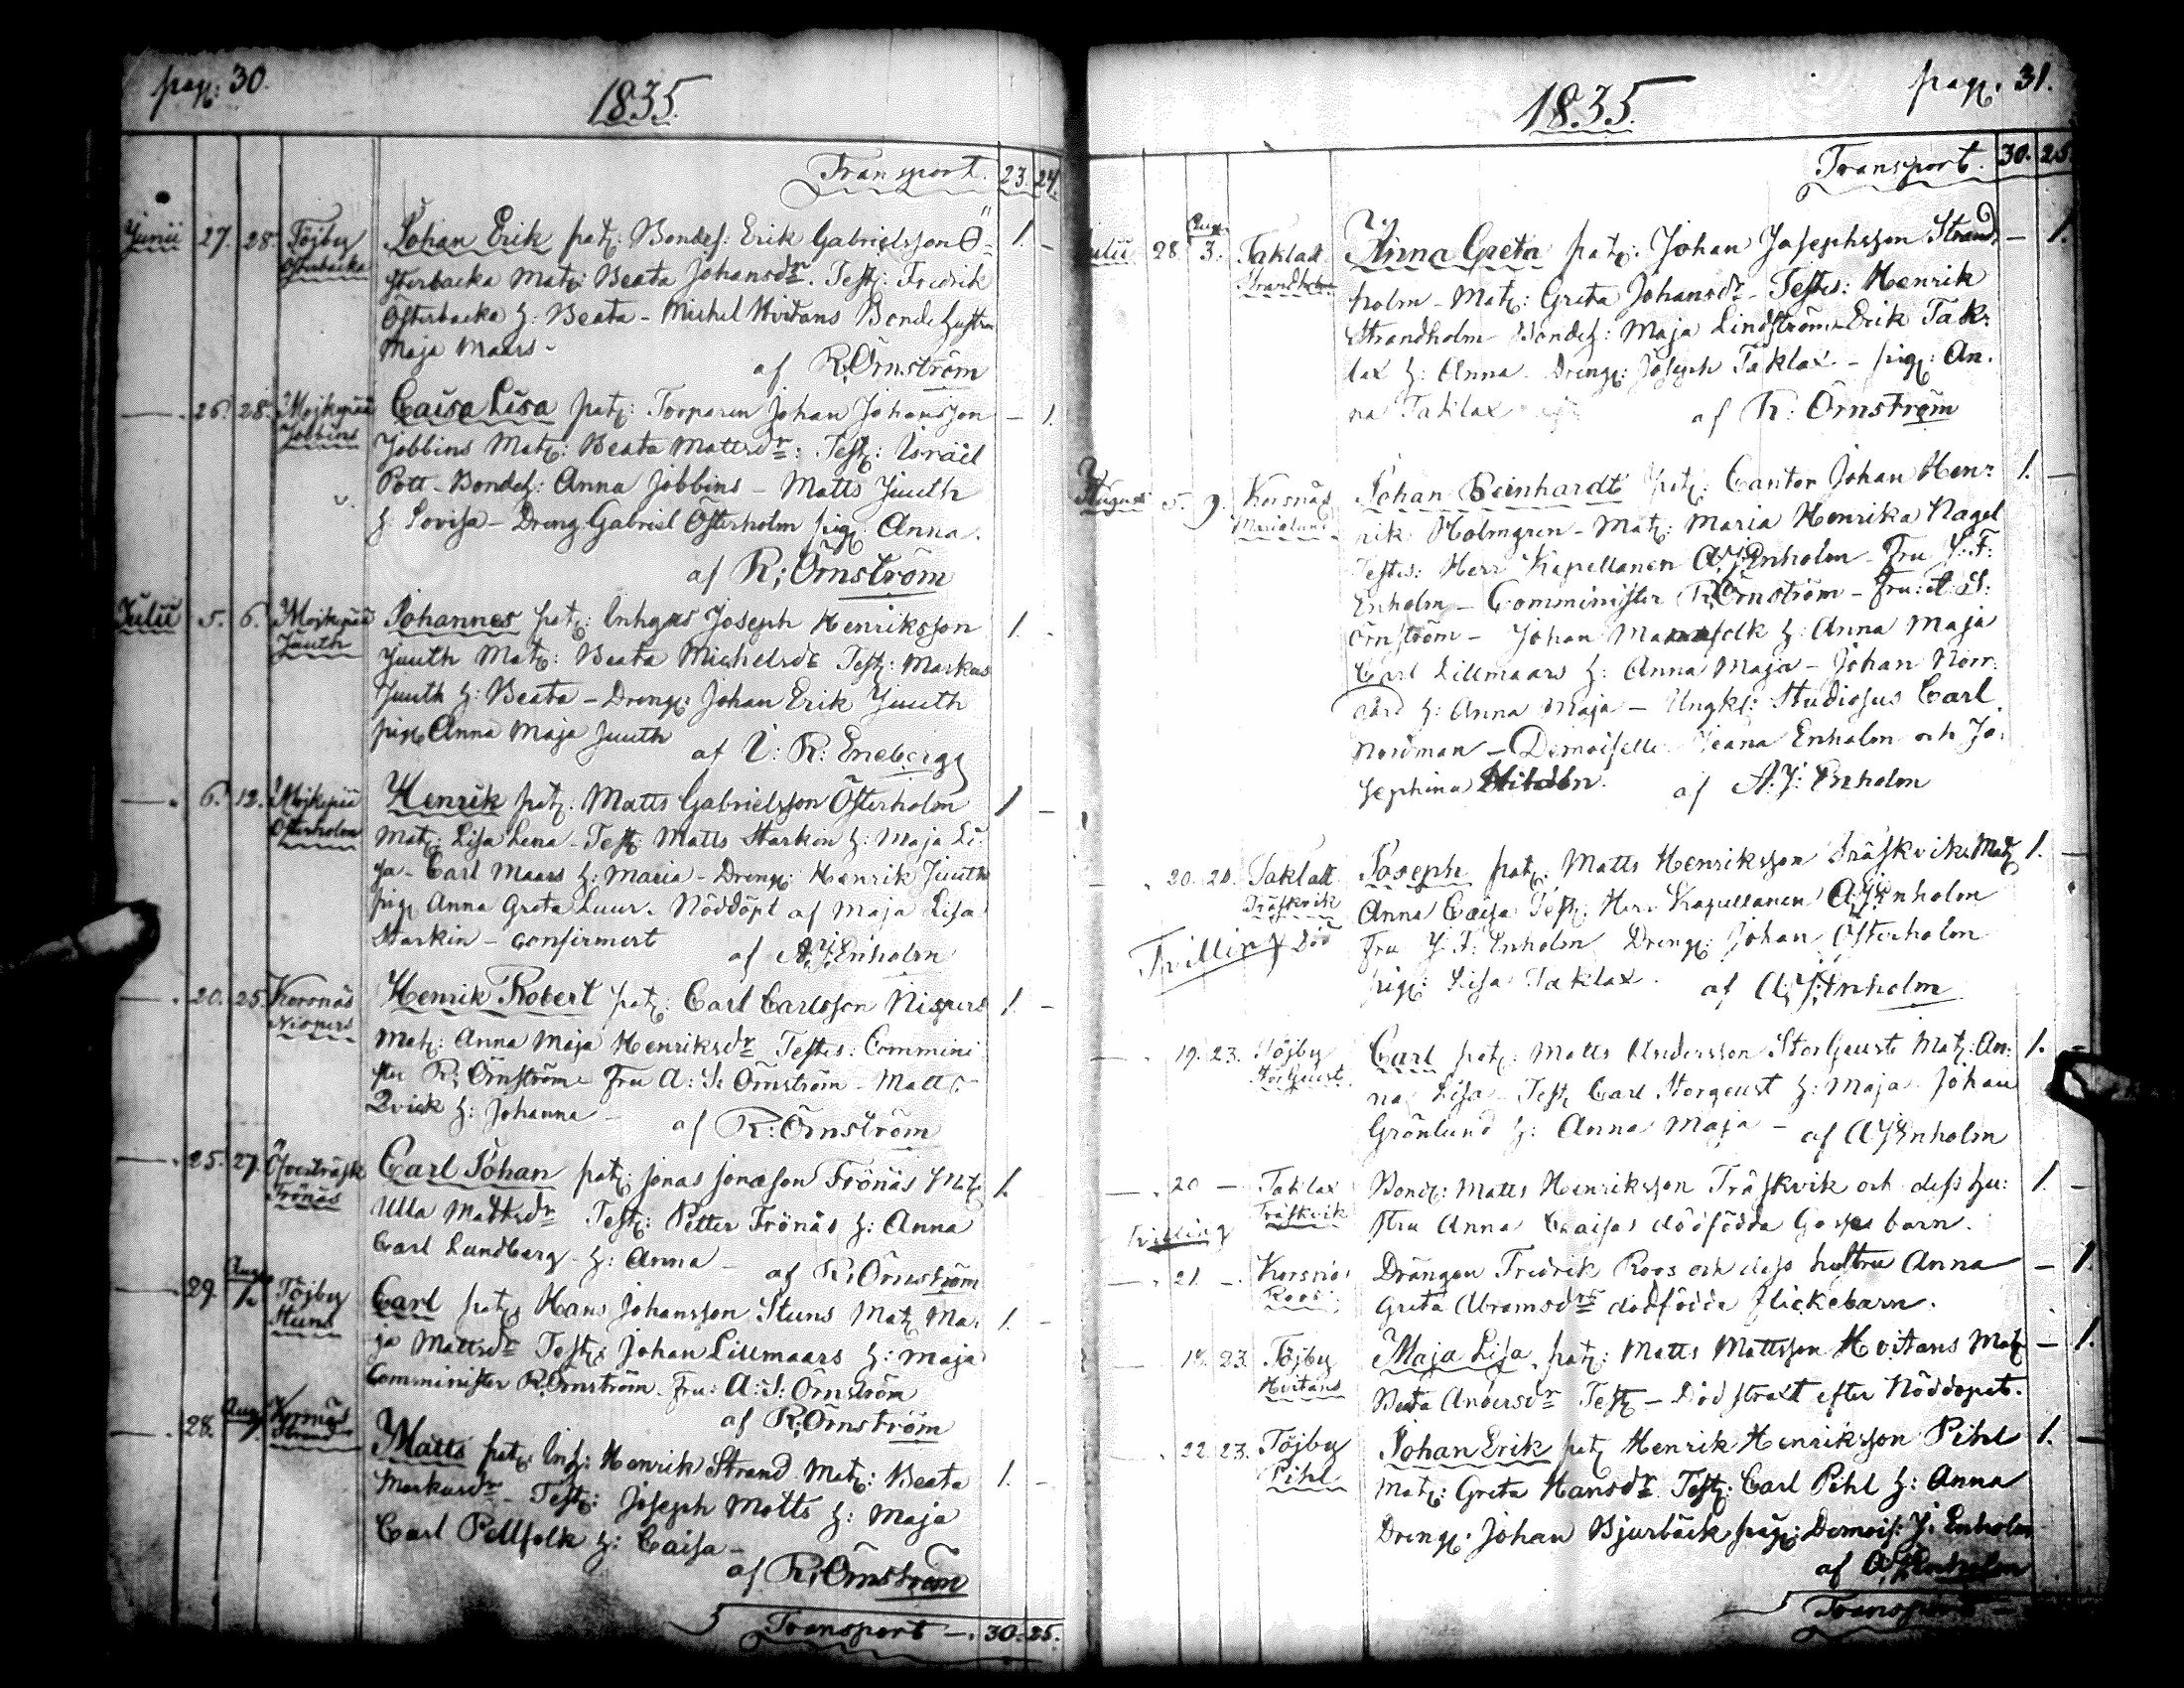 pag: 30.
1835
Transport. 23. 24.
Junii 27. 28. Töjby Österbacka Johan Erik pat: Bondes: Erik Gabrielsson Ö- 1. -
sterbacka Mat: Beata Johansdr. Test: Fredrik
Österbacka h: Beata - Michel Hvitans Bonde hustru
Maja Maars -
af R. Örnström
— . 26. 28. Mojkepää Jobbins Caisa Lisa pat: Torparen Johan Johansson - 1.
Jobbins Mat: Beata Mattsdr: Test: Israel
Pott - Bondeh: Anna Jobbins - Matts Juuth
h: Lovisa - Dreng Gabriel Österholm pig: Anna.
af R: Örnström
Julii 5. 6. Mojkepää Juuth Johannes pat: Inhyses Joseph Henriksson 1. -
Juuth Mat: Beata Michelsdr Test: Markus
Juuth h: Beata - Dreng: Johan Erik Juuth
pig: Anna Maja Juuth
af I: R: Eneberg
— . 6. 12. Mojkepää Österholm Henrik pat: Matts Gabrielsson Österholm 1 -
Mat: Lisa Lena - Test: Matts Starkin h: Maja Li-
sa - Carl Maars h: Maria - Dreng: Henrik Juuth
pig: Anna Greta Luur. Nöddöpt af Maja Lisa
Starkin - confirmert
af A: J: Enholm
— . 20. 25. Korsnäs Nispers Henrik Robert pat: Carl Carlsson Nispers 1. -
Mat: Anna Maja Henriksdr Testes: Commini
ster R: Örnström Fru A: S: Örnström - Matts
Qvick h: Johanna -
af R: Örnström
— . 25. 27. Öfverträsk Frönäs Carl Johan pat: Jonas Jonasson Frönäs Mat: 1.
Ulla Mattsdr Test: Petter Frönäs h: Anna
Carl Lundberg - h: Anna -
af R: Örnström
— . 29. Aug. 1. Töjby Stuns Carl pat: Hans Johansson Stuns Mat: Ma- 1. -
ja Mattsdr Test: Johan Lillmaars h: Maja
Comminister R. Örnström. Fru: A: S: Örnström
af R: Örnström
— . 28. Aug. Korsnäs Strand Matts pat: Inh: Henrik Strand Mat: Beata 1. -
Markusdr - Test: Joseph Motts h: Maja
Carl Pellfolk h: Caisa -
af R: Örnström
Transport - . 30. 25.
pag. 31.
1835.
Transport. 30. 25.
Julii 28. Aug. 3. Taklax Strandholm Anna Greta pat: Johan Josephsson Strand- - 1.
holm - Mat: Greta Johansdr - Testes: Henrik
Strandholm Bondeh: Maja Lindström Erik Tak-
lax h: Anna. Dreng: Joseph Taklax - pig: An-
na Taklax
af R: Örnström
August 5. 9. Korsnäs Marialund Johan Reinhardt pat: Cantor Johan Hen- 1. -
rik Holmgren - Mat: Maria Henrika Nagel
Testes: Herr Kapellanen A. J. Enholm - Fru J: F:
Enholm - Comminister R. Örnström - Fru: A: S:
Örnström - Johan Mannfolk h: Anna Maja
Carl Lillmaars h: Anna Maja - Johan Norr-
gård h: Anna Maja - Ungk: Studiosus Carl
Nordman - Demoiselle Jeana Enholm och Jo-
sephina
af A. J: Enholm
— . 20. 20. Taklax Träskvik Joseph pat: Matts Henriksson Träskvik Mat: 1. -
Tvilling död
Anna Caisa Test: Herr Kapellanen A: J: Enholm
Fru J. F: Enholm Dreng: Johan Österholm
pig: Lisa Taklax.
af A: J: Enholm
— . 19. 23. Töjby Storgeust Carl pat: Matts Andersson Storgeust Mat: An- 1. -
na Lisa - Test: Carl Storgeust h: Maja Johan
Grönlund h: Anna Maja - af A J Enholm
— . 20 — Taklax Träskvik Bond: Matts Henriksson Träskvik och dess hu- 1. -
Tvilling
stru Anna Caisas dödfödda Gosse barn.
— . 21. — Korsnäs Roos Drängen Fredrik Roos och dess hustru Anna - 1.
Greta Abramsdrs dödfödda flickebarn.
— 19. 23. Töjby Hvitans Maja Lisa pat: Matts Mattsson Hvitans Mat: - 1.
Beata Andersdr Test: - Död straxt efter Nöddopet.
— . 22. 23. Töjby Pihl Johan Erik pat: Henrik Henriksson Pihl 1. -
Mat: Greta Hansdr. Test: Carl Pihl h: Anna
Dreng: Johan Bjurbäck pig: Demois: J: Enholm
af A. J. Enholm
Transport